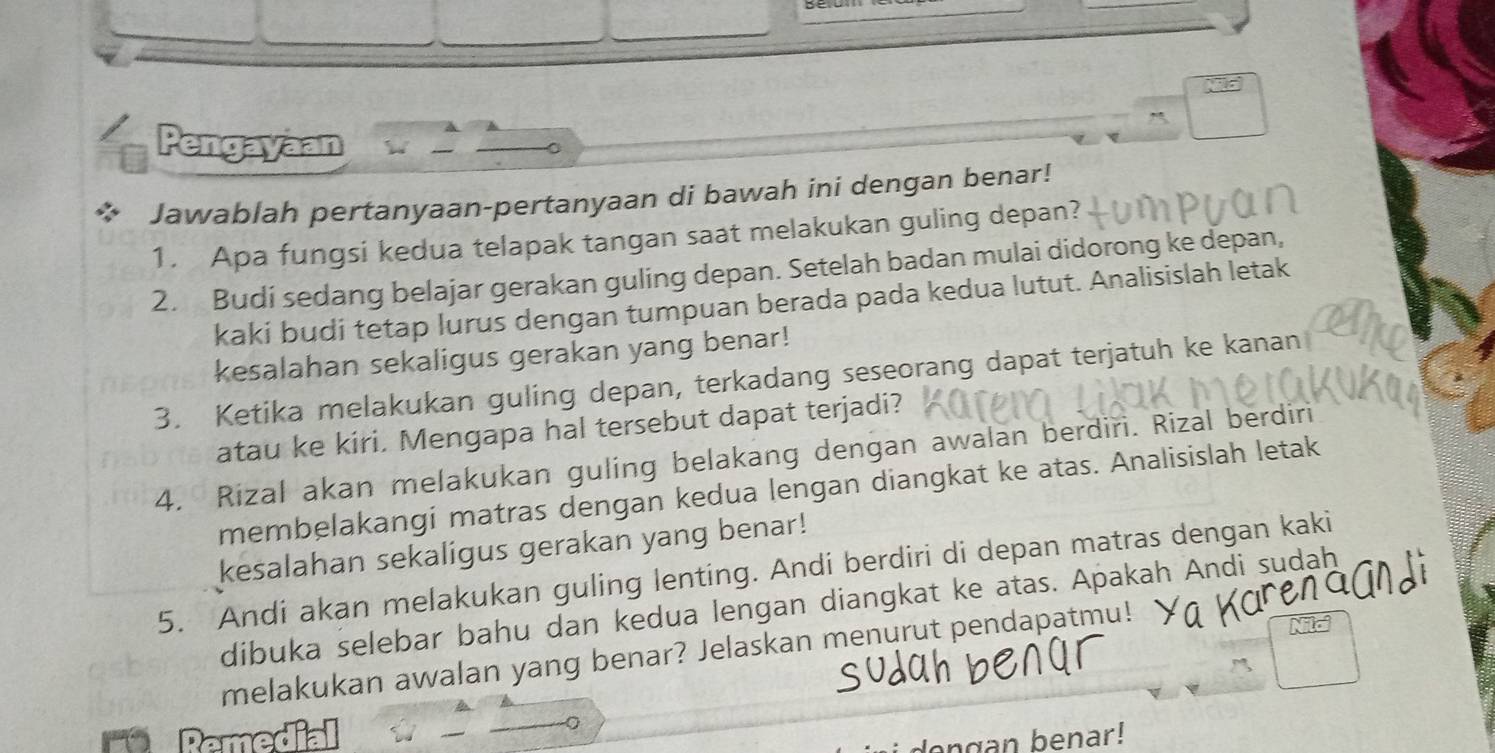 Nilai
Pengayaan
❖ Jawablah pertanyaan-pertanyaan di bawah ini dengan benar!
1. Apa fungsi kedua telapak tangan saat melakukan guling depan? tumpuan
2. Budi sedang belajar gerakan guling depan. Setelah badan mulai didorong ke depan,
kaki budi tetap lurus dengan tumpuan berada pada kedua lutut. Analisislah letak
kesalahan sekaligus gerakan yang benar!
3. Ketika melakukan guling depan, terkadang seseorang dapat terjatuh ke kanan
atau ke kiri. Mengapa hal tersebut dapat terjadi? karena tidak melakukan
4. Rizal akan melakukan guling belakang dengan awalan berdiri. Rizal berdiri
membelakangi matras dengan kedua lengan diangkat ke atas. Analisislah letak
kesalahan sekaligus gerakan yang benar!
5. Andi akan melakukan guling lenting. Andi berdiri di depan matras dengan kaki
dibuka selebar bahu dan kedua lengan diangkat ke atas. Apakah Andi sudah
melakukan awalan yang benar? Jelaskan menurut pendapatmu! Ya Karena andi
sudah benar
Nilai
Remedial
dengan benar!